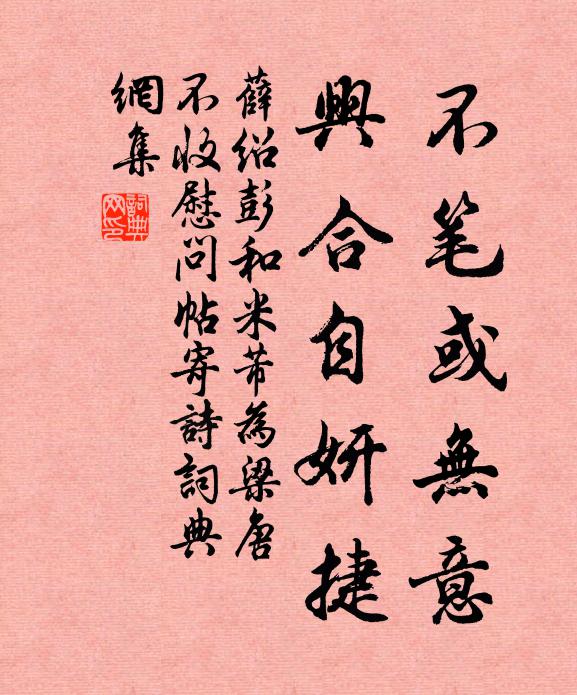 不笔或無意
興合自妍捷
薛紹彭和米芾為梁唐
不收慰问帖寄詩詞典
網集
詞典網印